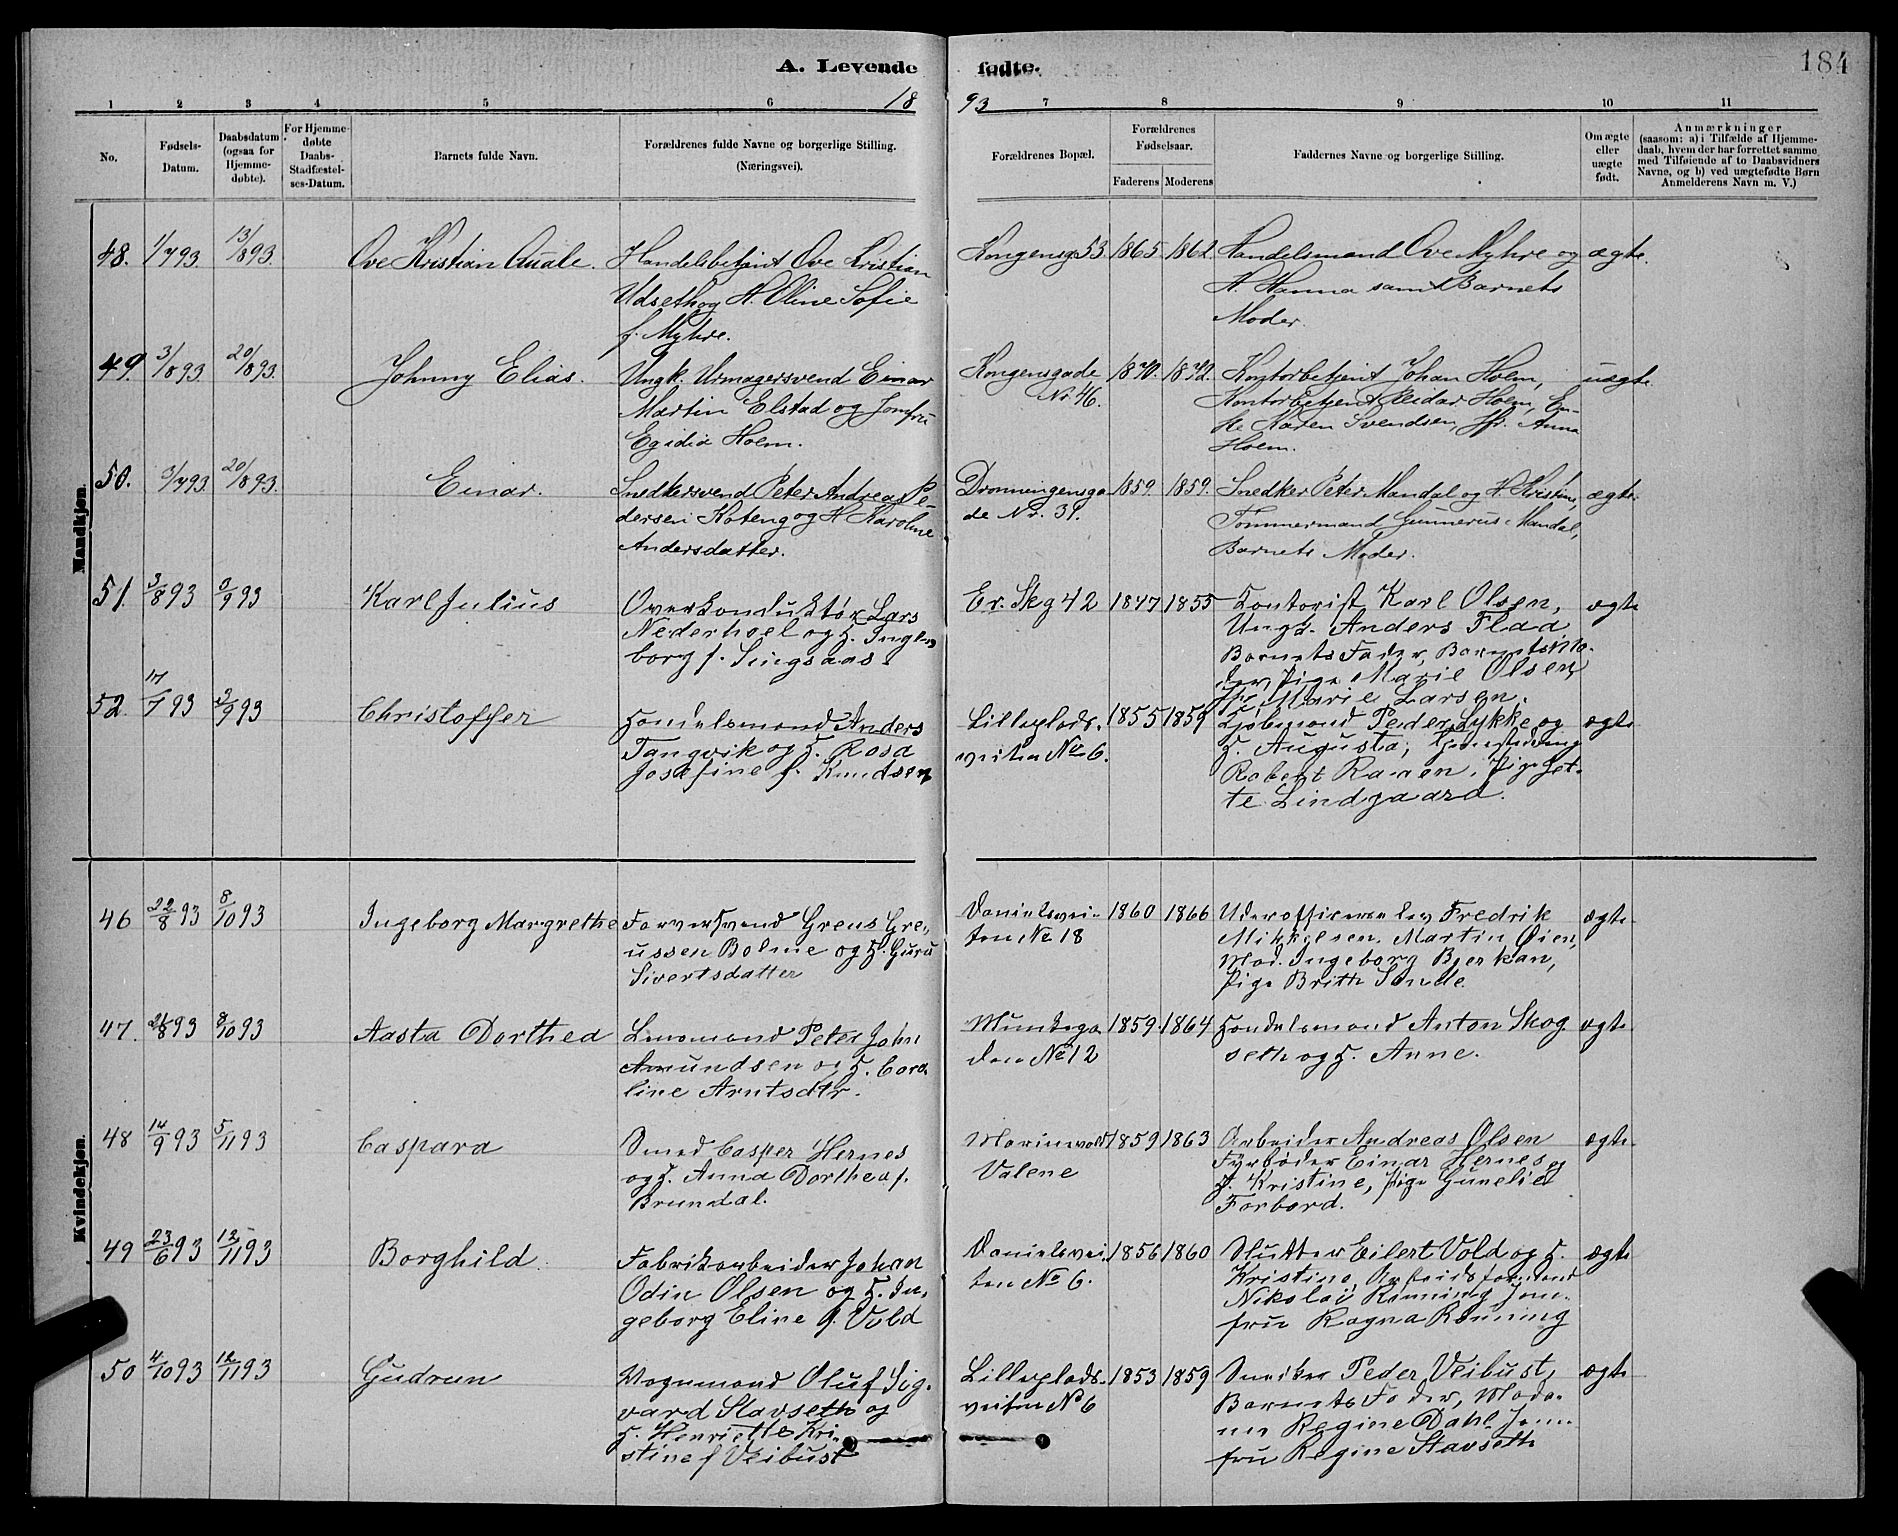 184
A. Levende fødte.
18 93
1 2 3 4 5 6 7 8 9 10 11
No.
Fødsels-Datum.
Daabsdatum (ogsaa for Hjemme-døbte).
For Hjemme-døbte Daabs-Stadfæstel-ses-Datum.
Barnets fulde Navn.
Forældrenes fulde Navne og borgerlige Stilling.
(Næringsvei).
Forældrenes Bopæl.
Forældrenes Fødselsaar.
Faderens Moderens
Faddernes Navne og borgerlige Stilling.
Om ægte eller uægte født.
Anmærkninger
(saasom: a) i Tilfælde af Hjemme-
daab, hvem der har forrettet samme
med Tilføiende af to Daabsvidners
Navne, og b) ved uægtefødte Børn
Anmelderens Navn m. V.)
Mandkjøn.
48. 1/7 93. 13/8 93. Ove Kristian Quale. Handelsbetjent Ove Kristian
Udseth og H. Oline Sofie
f. Myhre.
Kongensg 53. 1865 1862. Handelsmand Ove Myhre og ægte.
H. Hanna samt Barnets
Moder.
49. 3/8 93. 20/8 93. Johnny Elias. Ungk. Urmagersvend Einar
Martin Elstad og Jomfru
Egidia Holm.
Kongensgade 1870. 1872. Kontorbetjent Johan Holm, uægte.
Nr 46. Kontorbetjent Reidar Holm, En-
ke Karen Svendsen, Jfr. Anna
Holm.
50. 3/7 93. 20/8 93. Einar. Snedkersvend Peter Andreas Pe-
dersen Koteng og H Karoline
Andersdatter.
Dronningensga 1859. 1859. Snedker Peter Mandal og H. Kristine, ægte.
de Nr. 31. Tømmermand Gunnerus Mandal,
Barnets Moder.
51. 3/8 93 3/9 93 Karl Julius Overkonduktør Lars
Nederhoel og H. Inge-
borg f. Singsaas.
Er. Skg 42 1847 1855 Kontorist Karl Olsen, ægte
Ungk. Anders Flaa
Barnets Fader, Barnets Mo-
der, Pige Marie Olsen,
Jfr Marie Larsen.
52. 17/7 93 3/9 93 Christoffer Handelsmand Anders
Tangvik og H. Rosa
Josefine f. Knudsen
Lilleplads- 1855 1859 Ljobmand Peder Lykke og ægte
veiten No 6. H. Augusta,
Robert Raaen, Pige Jet-
te Lindgaard.
Kvindekjøn.
46 22/8 93 8/10 93 Ingeborg Margrethe Farversvend Greus Gre-
ussen Bolme og H. Guru
Sivertsdatter
Danielsvei- 1860 1866 Underofficerselev Fredrik ægte
ten No 18 Mikkelsen, Martin Øien,
Mad. Ingeborg Bjerkan,
Pige Brith Sande
47. 21/8 93 8/10 93 Aasta Dorthea Linsmand Peter John
Amundsen og H. Caro-
line Arntsdtr.
Munkega 1859. 1864 Handelsmand Anton Skog ægte
den No 12 seth og H. Anne.
48 14/9 93 5/11 93 Caspara Smed Casper Hernes
og H. Anna Dorthea f.
Brundal.
Marinevold 1859 1863 Arbeider Andreas Olsen ægte
Valene Fyrbøder Einar Hernes og
H. Kristine, Pige Gunelie
Forbord.
49 23/6 93 12/11 93 Borghild. Fabrikarbeider Johan
Odin Olsen og H. In-
geborg Eline f. Vold
Danielsvei 1856 1860 Slutter Eilert Vold og H. ægte
ten No 6. Kristine, Arbeidsformand
Nikolai Rønning, Jom-
fru Ragna Rønning
50 4/10 93 12/11 93 Gudrun Vognmand Oluf Sig-
vard Stavseth og
H. Henriette Kri-
stine f Veibust
Lilleplads- 1853 1859 Snedker Peder Veibust, ægte
veiten No 6 Barnets Fader, Mada-
me Regine Dahl, Jom-
fru Regine Stavseth